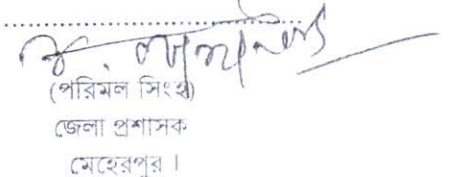 (পরিমল সিংহ)
জেলা প্রশাসক
মেহেরপুর ।